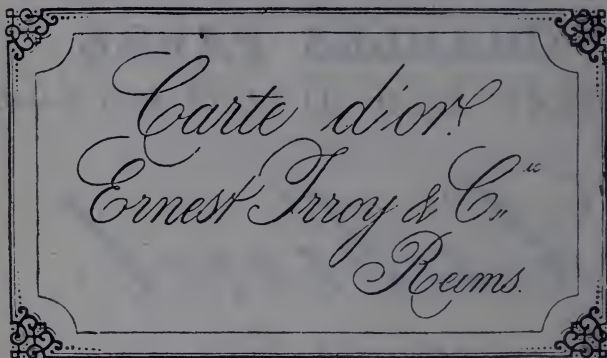 Carte d'or.
Ernest Irroy & Cie
Reims.